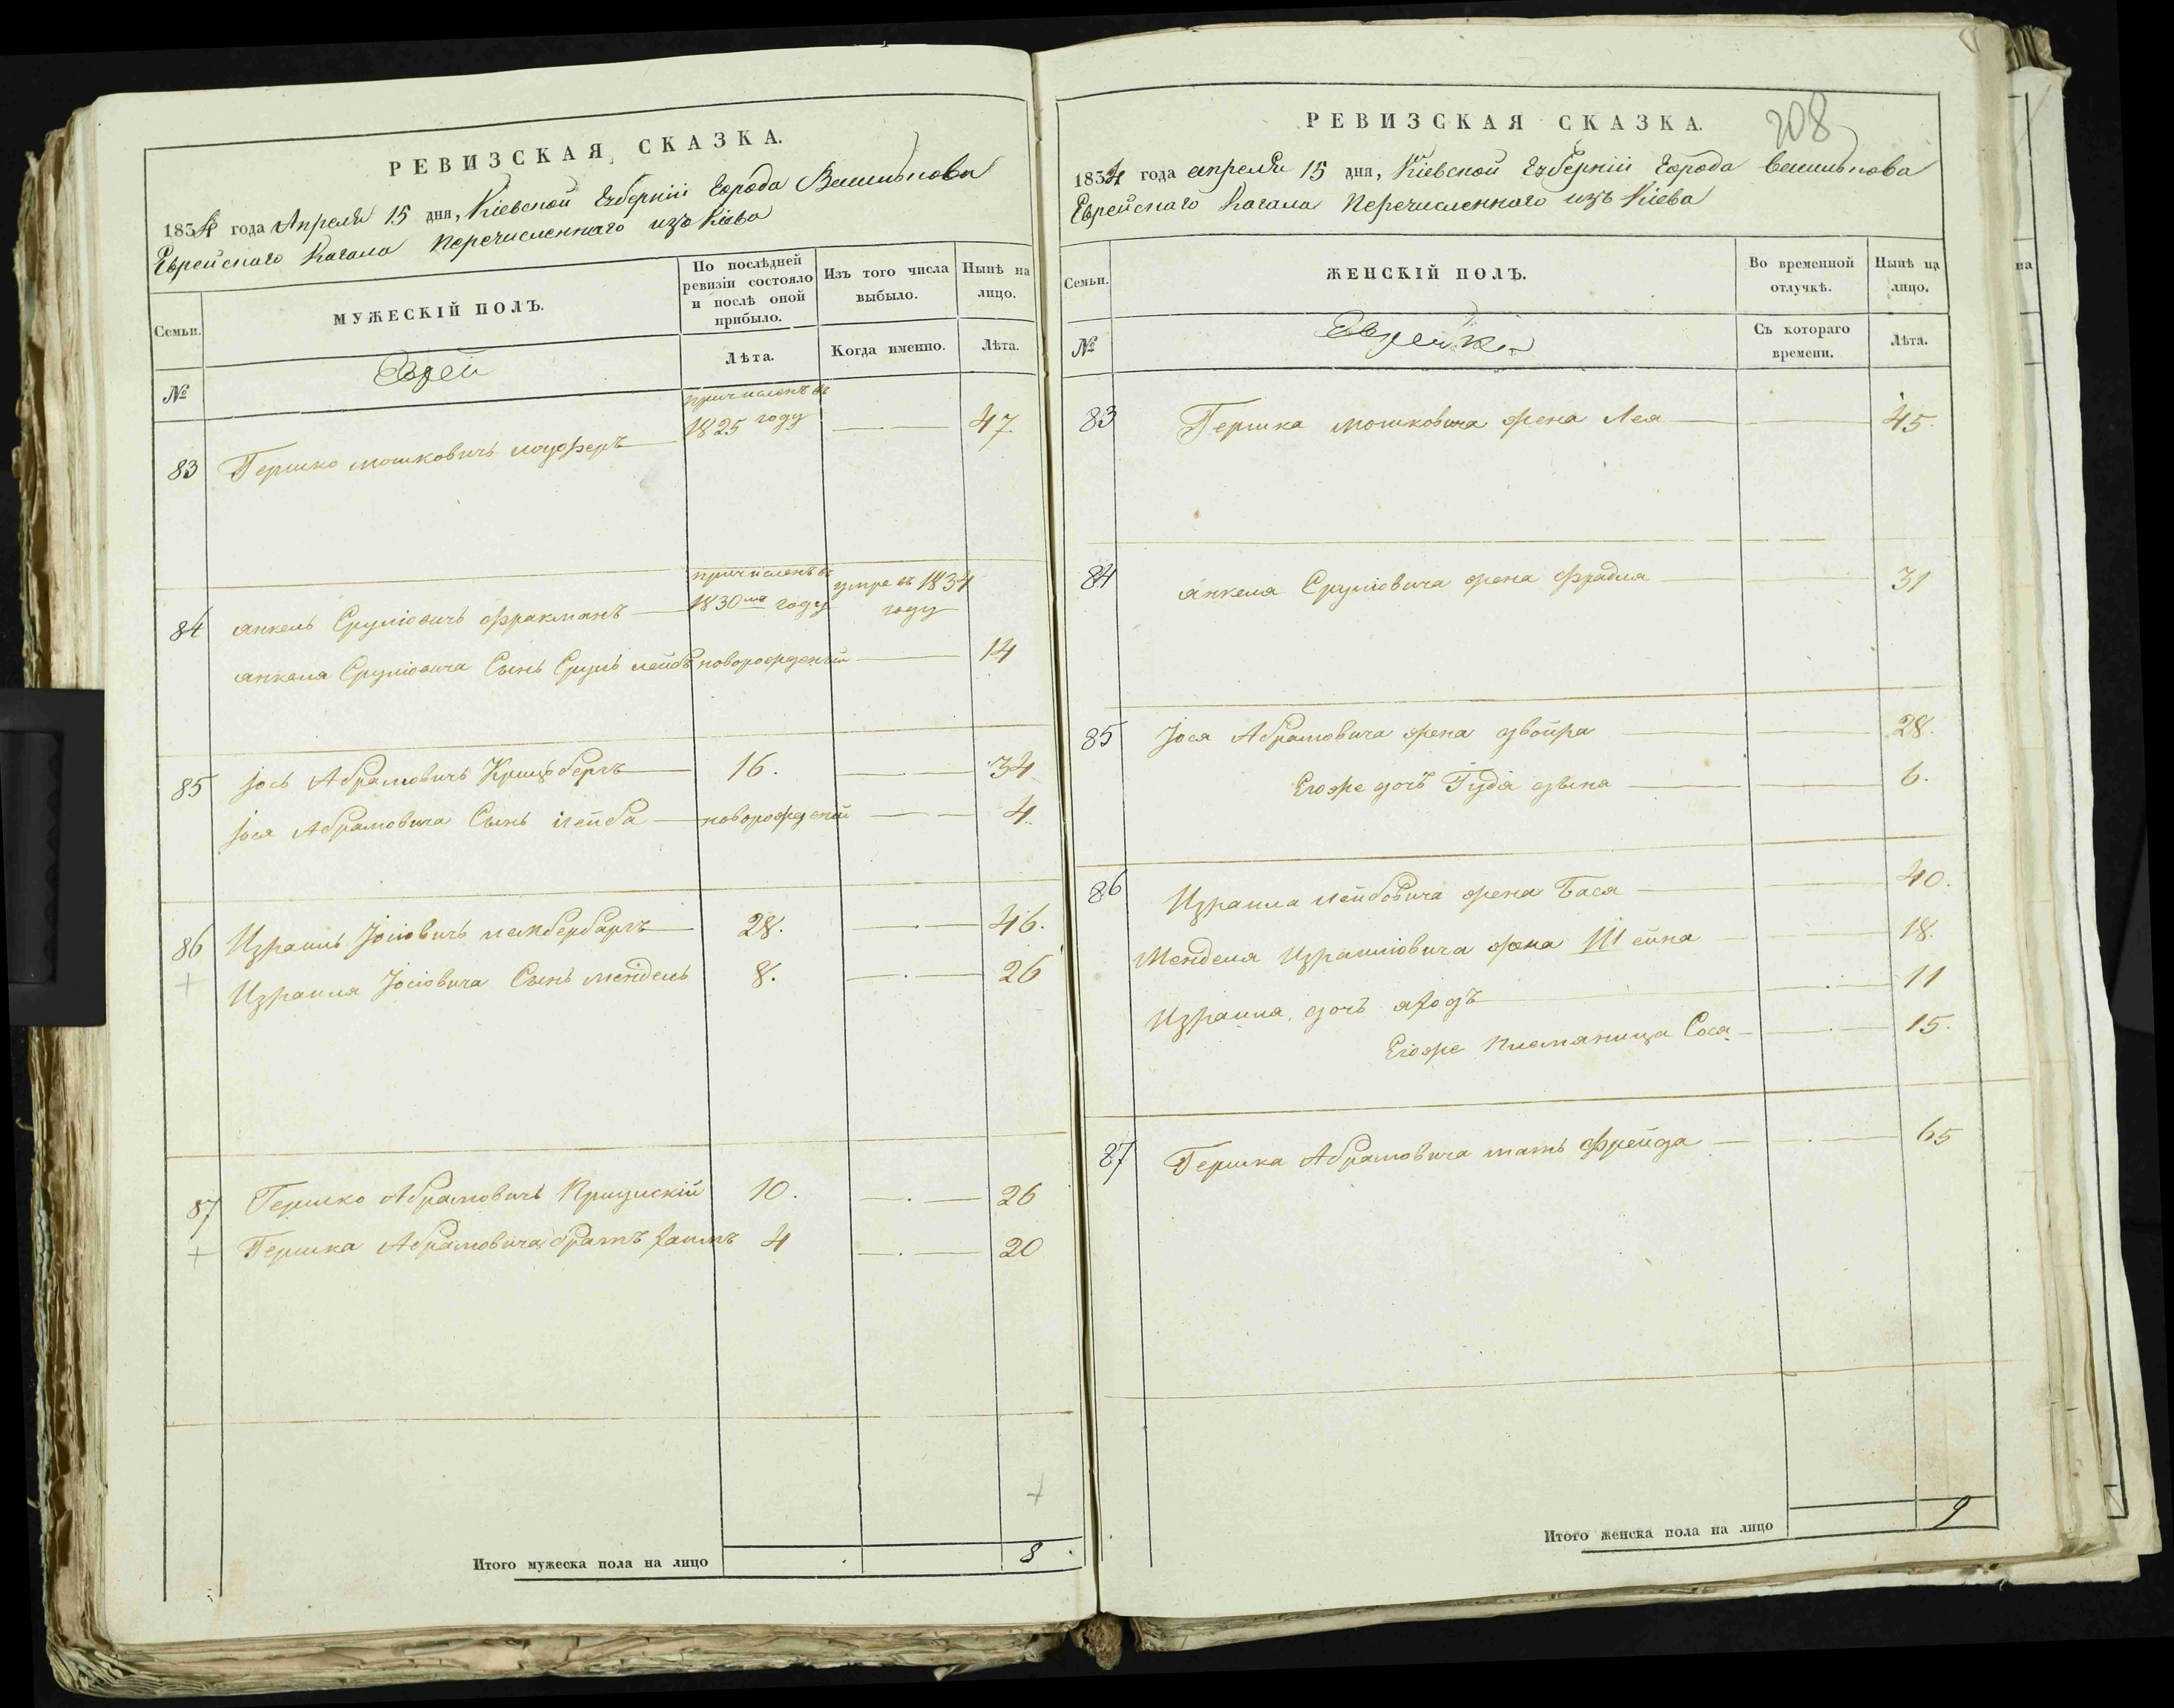 РЕВИЗСКАЯ СКАЗКА.
1834 года Апреля 15 дня, Кіевской Губерніи города Василькова
Еврейскаго Кагала перечисленнаго изъ Кіева
Семьи.
МУЖЕСКІЙ ПОЛЪ.
По послѣдней ревизіи состояло и послѣ оной прибыло.
Изъ того числа выбыло.
Нынѣ на лицо.
№
Еврей
Лѣта.
Когда именно.
Лѣта.
83 Гершко Мошковичъ причисленъ въ 1825 году 47
84 Янкель Срулiовичъ Фракманъ причисленъ въ 1830 году умре въ 1834 году
Янкеля Срулiовича Сынъ Сруль Лейбъ новорожденый 14
85 Іось Абрамовичъ 16. 34
Іося Абрамовича Сынъ Лейба новорожденый 4.
86 Израиль Іосiовичъ 28. 46.
Израиля Іосiовича Сынъ Мендель 8. 26
87 Гершко Абрамовичъ 10. 26
Гершка Абрамовича братъ Хаимъ 4 20
Итого мужеска пола на лицо 8
208
РЕВИЗСКАЯ СКАЗКА.
1834 года апреля 15 дня, Кіевской Губерніи Города Василькова
Еврейскаго Кагала перечисленнаго изъ Кіева
Семьи.
ЖЕНСКІЙ ПОЛЪ.
Во временной отлучкѣ.
Нынѣ на лицо.
№
Еврейки
Съ котораго времени.
Лѣта.
83 Гершка Мошковича жена Лея 45.
84 Янкеля Срулiовича жена Фрадля 31
85 Іося Абрамовича жена Двойра 28.
Егоже дочь 6.
86 Израиля Лейбовича жена Бася 40.
Менделя Израилiовича жена Шейна 18.
Израиля дочь 11
Егоже племяница Сося 15.
87 Гершка Абрамовича мать Фрейда 65
Итого женска пола на лицо 9